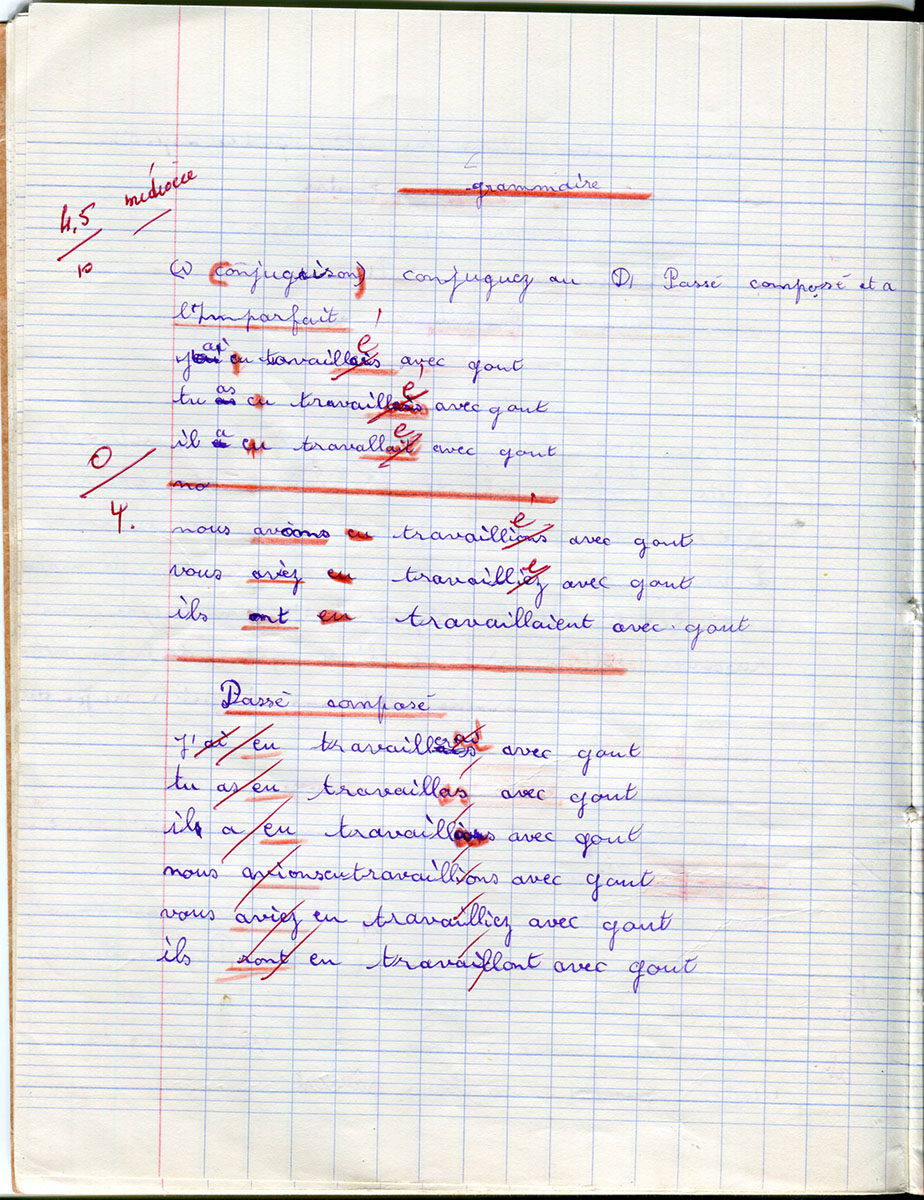 grammaire
4,5 médiocre
10
1) (Conjugaison) conjuguez au 1) Passé composé et a
l'Imparfait
j'ai eu travaillais é avec gout
tu as eu travaillais é avec gout
il a eu travallait é avec gout
0
4.
no
nous avions eu travaillions é avec gout
vous aviez eu travailliez é avec gout
ils ont eu travaillaient avec gout
Passé composé
j'ai eu travaill avec gout
tu as eu travaillas avec gout
il a eu travaill avec gout
nous avions eu travaillions avec gout
vous aviez eu travailliez avec gout
ils sont eu travaillont avec gout